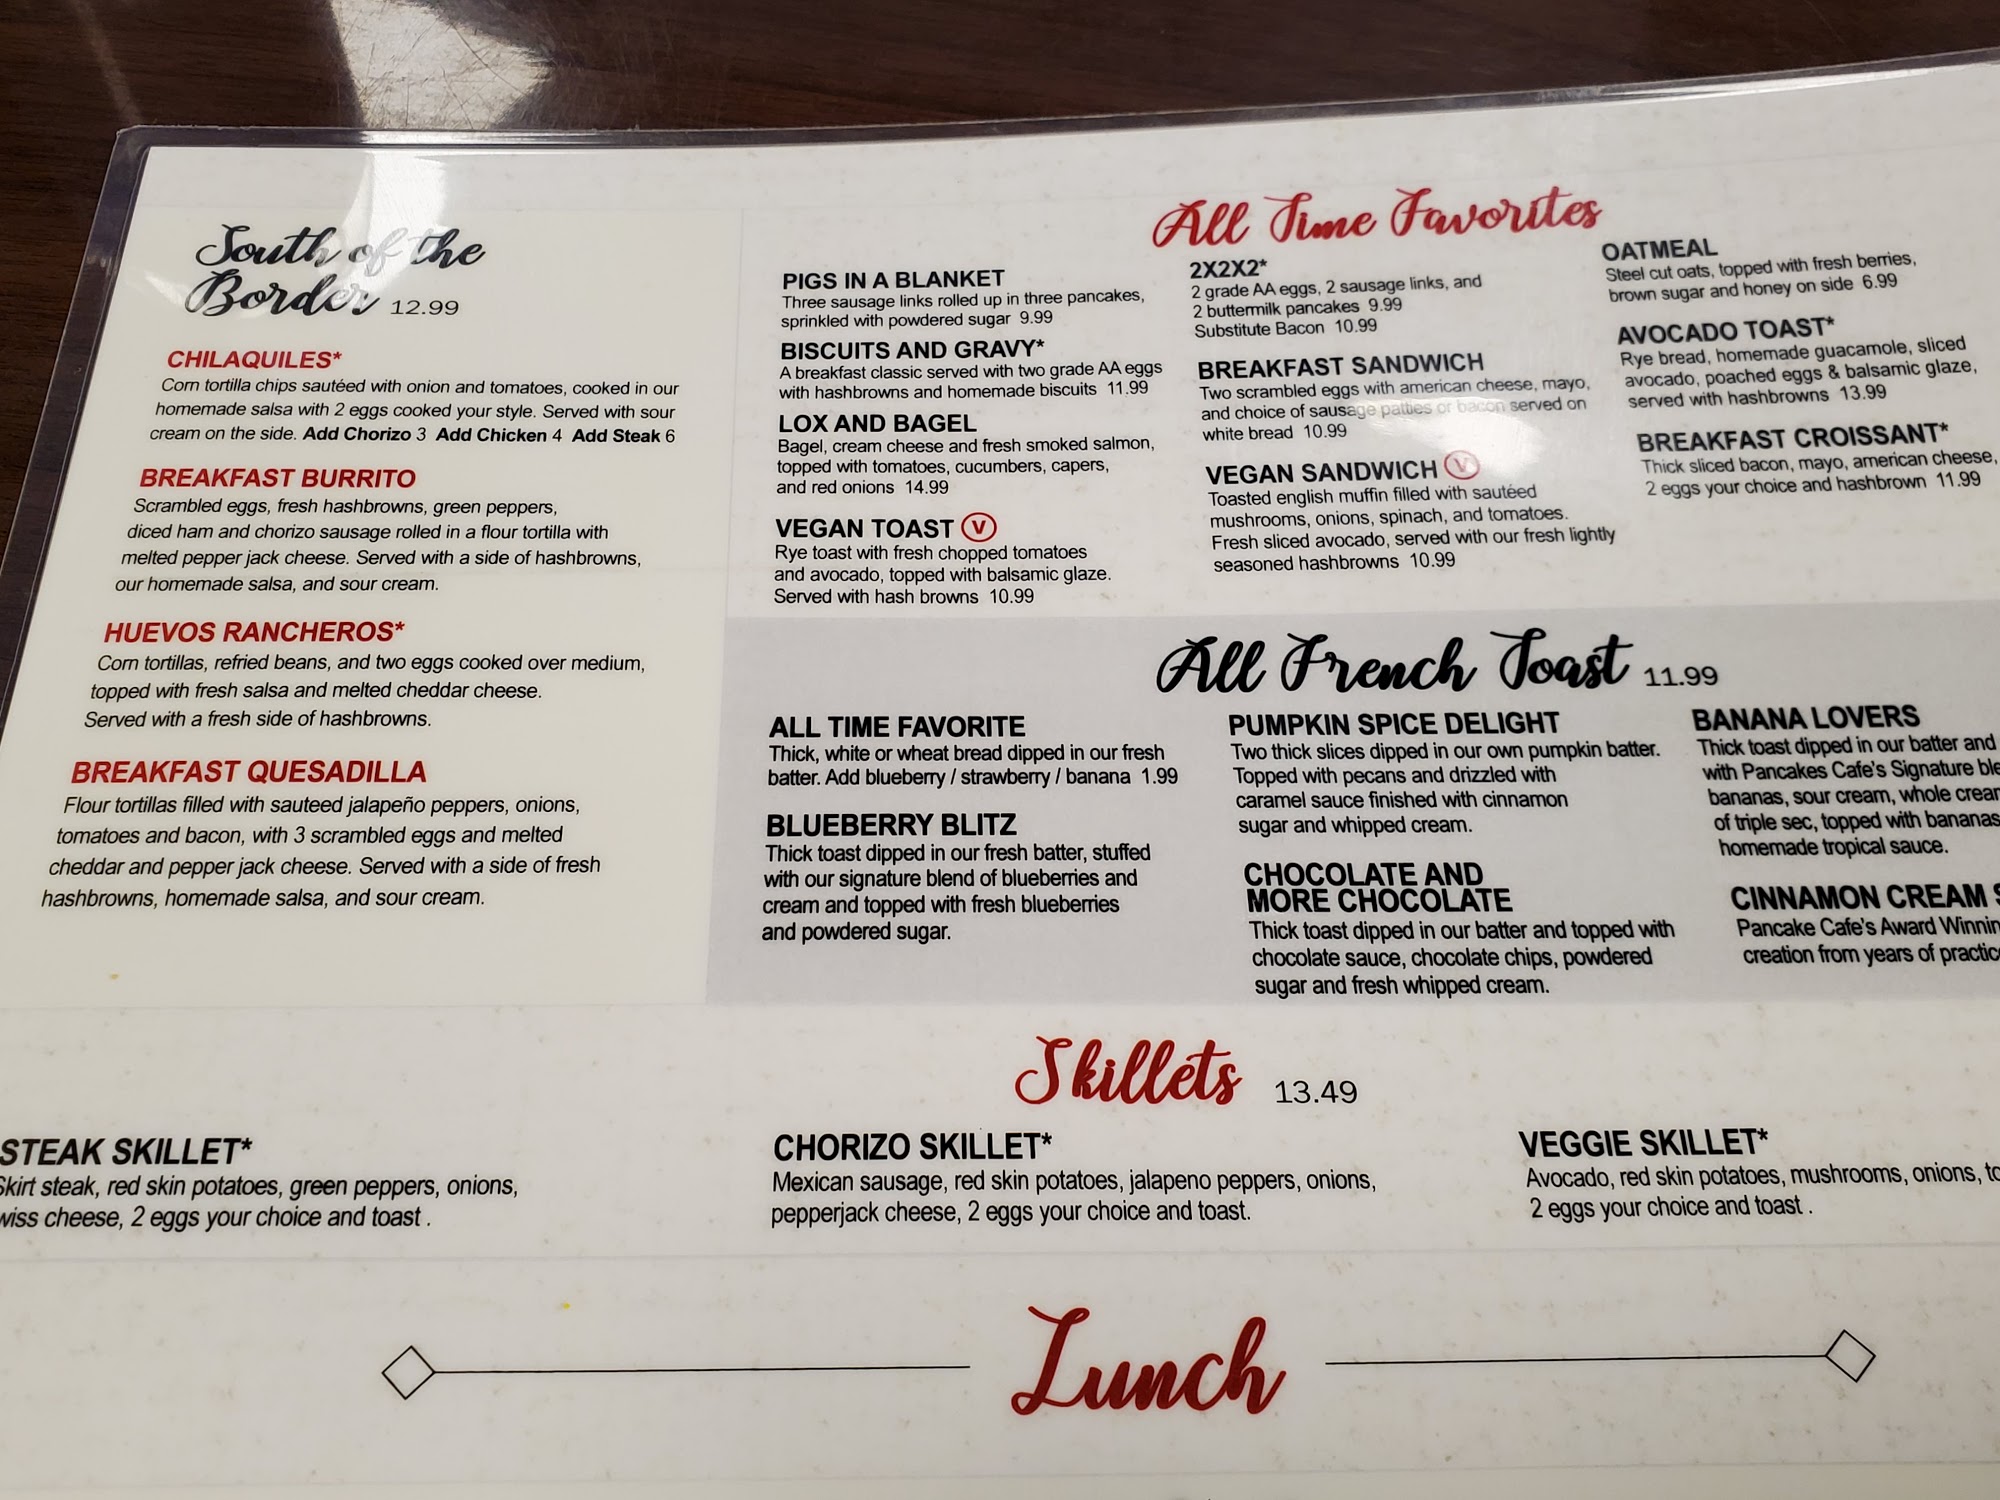 South of the
Border 12.99
CHILAQUILES*
Corn tortilla chips sautéed with onion and tomatoes, cooked in our
homemade salsa with 2 eggs cooked your style. Served with sour
cream on the side. Add Chorizo 3 Add Chicken 4 Add Steak 6
BREAKFAST BURRITO
Scrambled eggs, fresh hashbrowns, green peppers,
diced ham and chorizo sausage rolled in a flour tortilla with
melted pepper jack cheese. Served with a side of hashbrowns,
our homemade salsa, and sour cream.
HUEVOS RANCHEROS*
Corn tortillas, refried beans, and two eggs cooked over medium,
topped with fresh salsa and melted cheddar cheese.
Served with a fresh side of hashbrowns.
BREAKFAST QUESADILLA
Flour tortillas filled with sauteed jalapeño peppers, onions,
tomatoes and bacon, with 3 scrambled eggs and melted
cheddar and pepper jack cheese. Served with a side of fresh
hashbrowns, homemade salsa, and sour cream.
All Time Favorites
PIGS IN A BLANKET
Three sausage links rolled up in three pancakes,
sprinkled with powdered sugar 9.99
BISCUITS AND GRAVY*
A breakfast classic served with two grade AA eggs
with hashbrowns and homemade biscuits 11.99
LOX AND BAGEL
Bagel, cream cheese and fresh smoked salmon,
topped with tomatoes, cucumbers, capers,
and red onions 14.99
VEGAN TOAST V
Rye toast with fresh chopped tomatoes
and avocado, topped with balsamic glaze.
Served with hash browns 10.99
2X2X2*
2 grade AA eggs, 2 sausage links, and
2 buttermilk pancakes 9.99
Substitute Bacon 10.99
BREAKFAST SANDWICH
Two scrambled eggs with american cheese, mayo,
and choice of sausage patties or bacon served on
white bread 10.99
VEGAN SANDWICH V
Toasted english muffin filled with sautéed
mushrooms, onions, spinach, and tomatoes.
Fresh sliced avocado, served with our fresh lightly
seasoned hashbrowns 10.99
OATMEAL
Steel cut oats, topped with fresh berries,
brown sugar and honey on side 6.99
AVOCADO TOAST*
Rye bread, homemade guacamole, sliced
avocado, poached eggs & balsamic glaze,
served with hashbrowns 13.99
BREAKFAST CROISSANT*
Thick sliced bacon, mayo, american cheese,
2 eggs your choice and hashbrown 11.99
All French Toast 11.99
ALL TIME FAVORITE
Thick, white or wheat bread dipped in our fresh
batter. Add blueberry / strawberry / banana 1.99
BLUEBERRY BLITZ
Thick toast dipped in our fresh batter, stuffed
with our signature blend of blueberries and
cream and topped with fresh blueberries
and powdered sugar.
PUMPKIN SPICE DELIGHT
Two thick slices dipped in our own pumpkin batter.
Topped with pecans and drizzled with
caramel sauce finished with cinnamon
sugar and whipped cream.
CHOCOLATE AND
MORE CHOCOLATE
Thick toast dipped in our batter and topped with
chocolate sauce, chocolate chips, powdered
sugar and fresh whipped cream.
BANANA LOVERS
Thick toast dipped in our batter and
with Pancakes Cafe's Signature
bananas, sour cream, whole
of triple sec, topped with bananas
homemade tropical sauce.
CINNAMON CREAM
Pancake Cafe's Award
creation from years of
Skillets 13.49
STEAK SKILLET*
steak, red skin potatoes, green peppers, onions,
cheese, 2 eggs your choice and toast .
CHORIZO SKILLET*
Mexican sausage, red skin potatoes, jalapeno peppers, onions,
pepperjack cheese, 2 eggs your choice and toast.
VEGGIE SKILLET*
Avocado, red skin potatoes, mushrooms, onions,
2 eggs your choice and toast .
Lunch